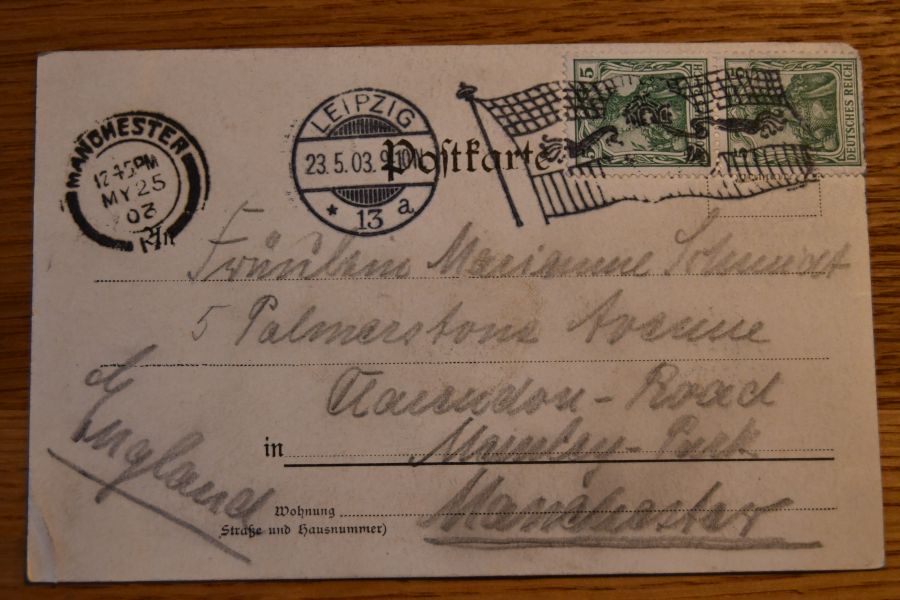 MANCHESTER
12.45PM
MY 25
03
LEIPZIG
23.5.03.9-10N
* 13 a
Postkarte
5
DEUTSCHES REICH
Fräulein Marianne
5 Palmerstone Avenue
Clarendon-Road
in
Manchester
England
Wohnung
(Straße und Hausnummer)